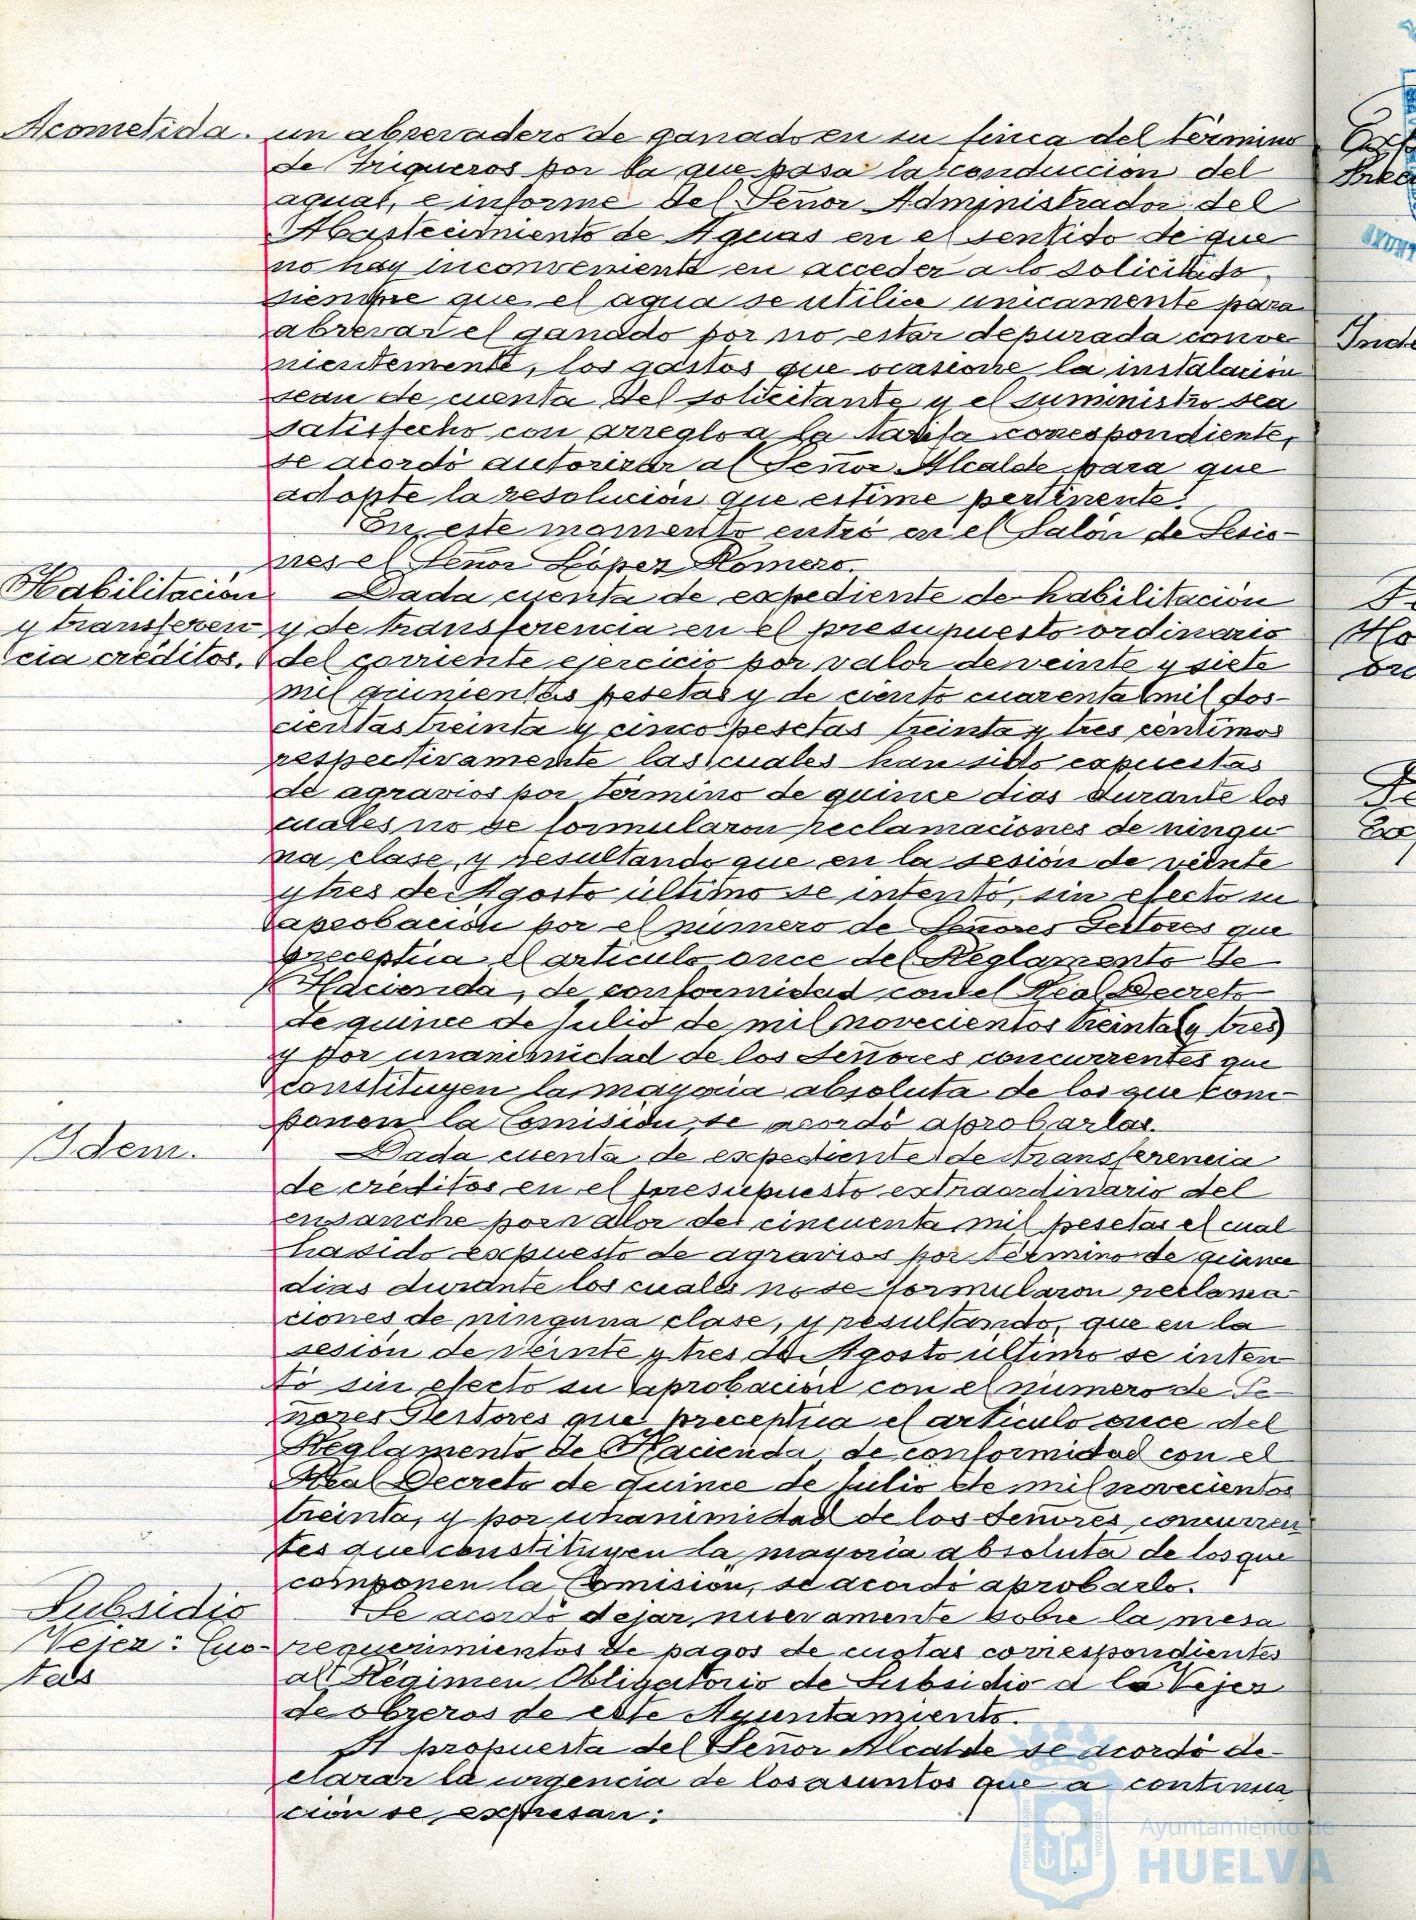 Acometida.
un abrevadero de ganado en su finca del término
de Trigueros por la que pasa la conduccion del
agua, e informe del Señor Administrador del
Abastecimiento de Aguas en el sentido de que
no hay inconveniente en acceder a lo solicitado,
siempre que el agua se utilice únicamente para
abrevar el ganado por no estar depurada conve-
nientemente, los gastos que ocasione la instalación
sean de cuenta del solicitante y el suministro sea
satisfecho con arreglo a la tarifa correspondiente,
se acordó autorizar al Señor Alcalde para que
adopte la resolución que estime pertinente.
En este momento entró en el Salón de Sesio-
nes el Señor López Romero.
Habilitación
y transferen
cia créditos.
Dada cuenta de expediente de habilitación
y de transferencia en el presupuesto ordinario
del corriente ejercicio por valor de veinte y siete
mil quinientas pesetas y de ciento cuarenta mil dos-
cientas treinta y cinco pesetas treinta y tres céntimos
respectivamente las cuales han sido expuestas
de agravios por término de quince dias durante los
cuales no se formularon reclamaciones de ningu
na clase, y resultando que en la sesión de veinte
y tres de Agosto último se intentó, sin efecto su
aprobación por el número de Señores Gestores que
preceptúa el artículo once del Reglamento de
Hacienda, de conformidad con el Real Decreto
de quince de Julio de mil novecientos treinta (y tres)
y por unanimidad de los Señores concurrentes que
constituyen la mayoria absoluta de los que com-
ponen la Comisión, se acordó aprobarlas.
Idem.
Dada cuenta de expediente de transferencia
de créditos en el presupuesto extraordinario del
ensanche por valor de cincuenta mil pesetas el cual
ha sido expuesto de agravios por término de quince
dias durante los cuales no se formularon reclama-
ciones de ninguna clase, y resultando, que en la
sesión de veinte y tres de Agosto último se inten
tó sin efecto su aprobación con el número de Se-
ñores Gestores que preceptúa el artículo once del
Reglamento de Hacienda, de conformidad con el
Real Decreto de quince de Julio de mil novecientos
treinta, y por unanimidad de los Señores concurren
tes que constituyen la mayoria absoluta de los que
componen la Comisión, se acordó aprobarlo.
Subsidio
Vejez: Cuo-
tas
Se acordó dejar nuevamente sobre la mesa
requerimientos de pagos de cuotas correspondientes
al Régimen Obligatorio de Subsidio a la Vejez
de obreros de este Ayuntamiento.
A propuesta del Señor Alcalde se acordó de-
clarar la urgencia de los asuntos que a continua
ción se expresan:
Ayuntamiento de
HUELVA